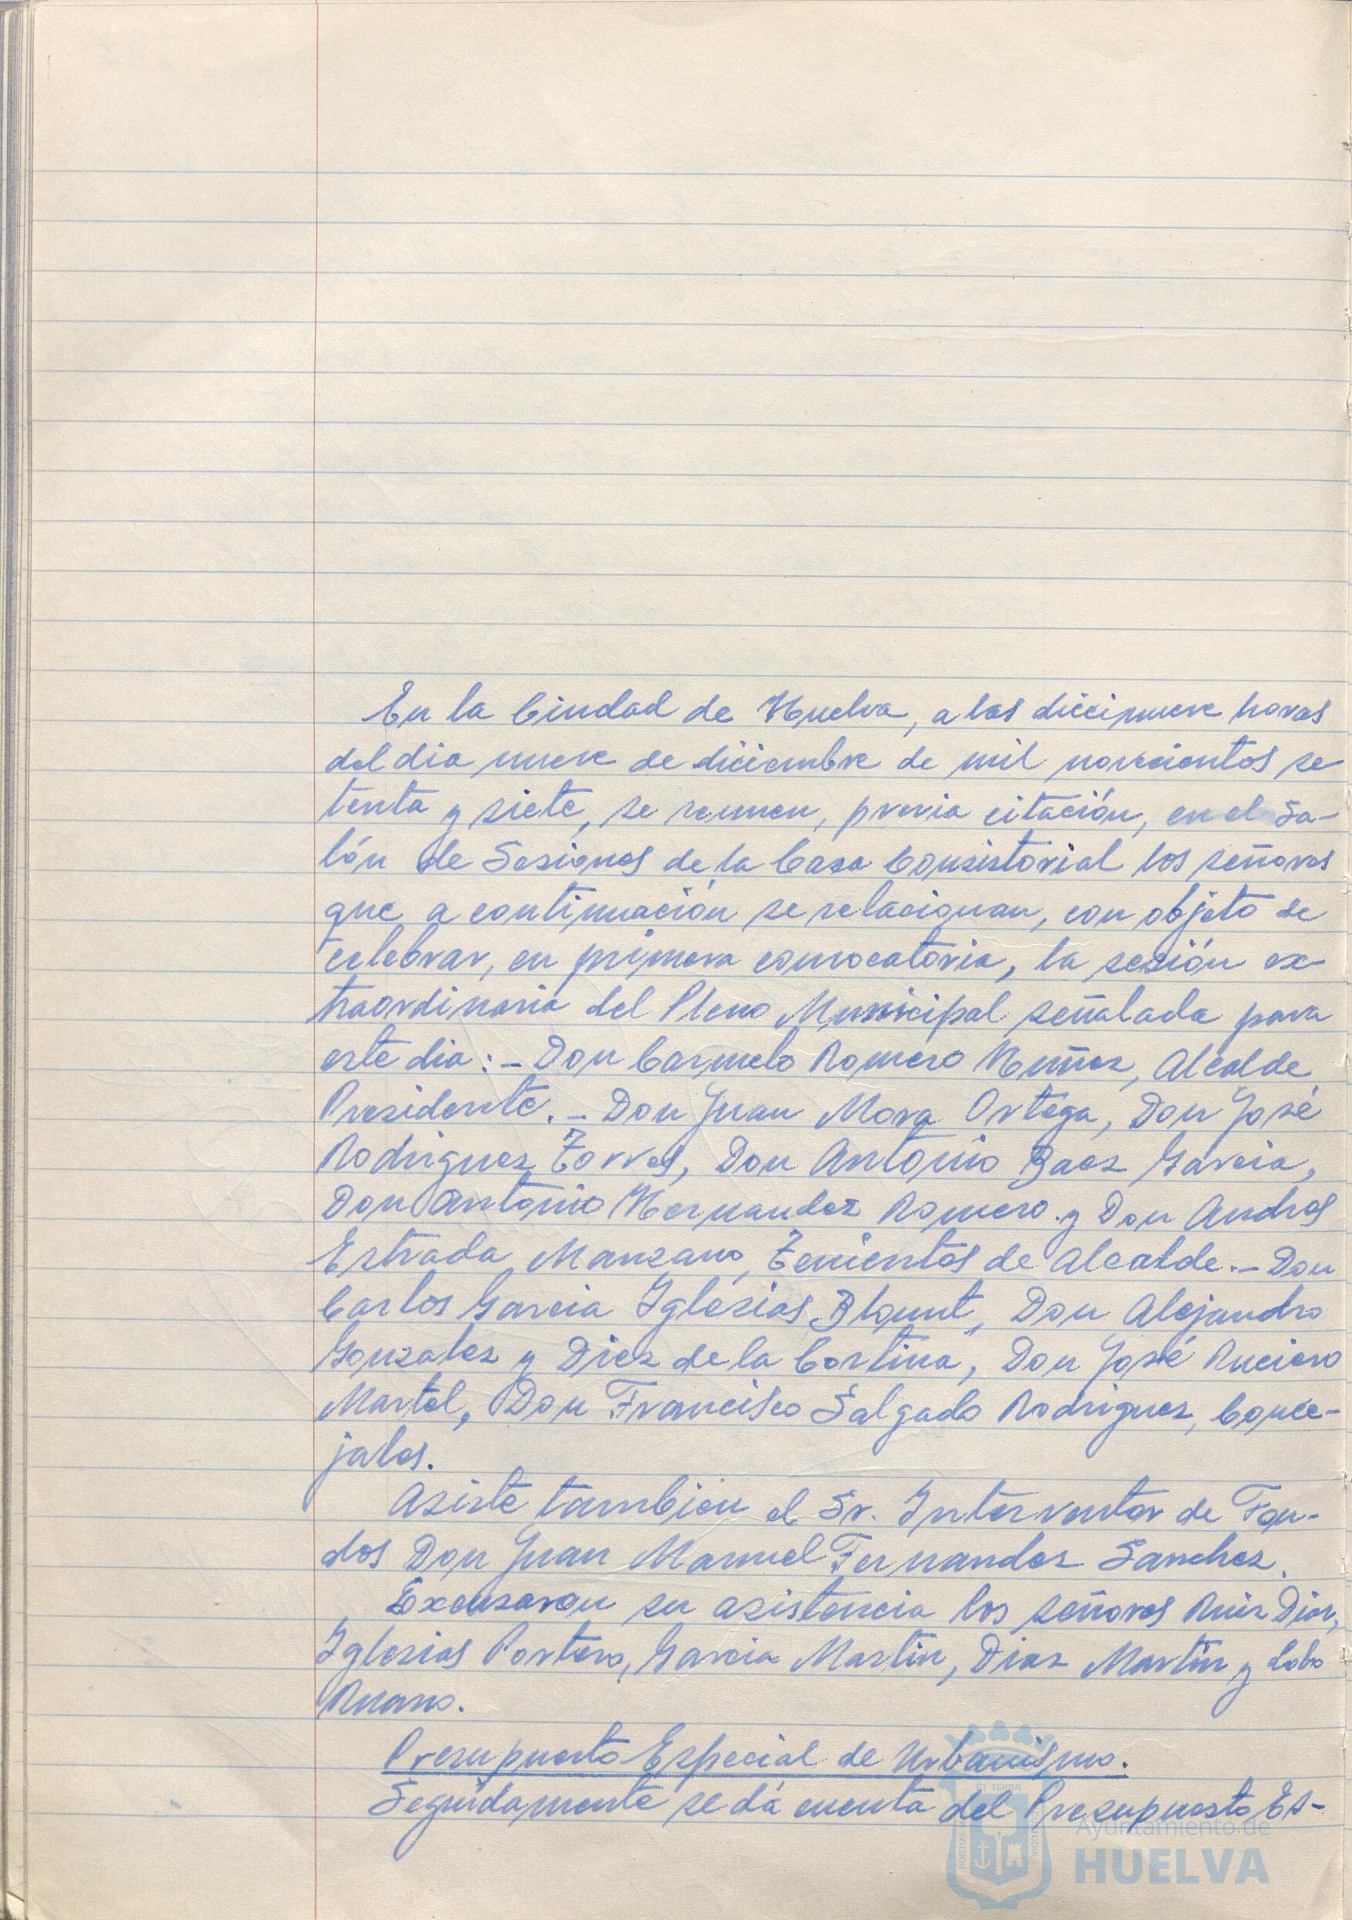 En la Ciudad de Huelva, a las diecinueve horas
del dia nueve de diciembre de mil novecientos se
tenta y siete, se reunen, previa citación, en el Sa-
lón de Sesiones de la Casa Consistorial los señores
que a continuación se relacionan, con objeto de
celebrar, en primera convocatoria, la sesión ex-
traordinaria del Pleno Municipal señalada para
este dia: - Don Carmelo Romero Nuñez, Alcalde
Presidente. - Don Juan Mora Ortega, Don José
Rodriguez Torres, Don Antonio Baez Garcia,
Don Antonio Hernandez Romero y Don Andres
Estrada Manzano, Tenientes de Alcalde. - Don
Carlos Garcia Iglesias Blount, Don Alejandro
Gonzalez y Diez de la Cortina, Don José Rucioro
Martel, Don Francisco Salgado Rodriguez, Conce-
jales.
Asiste tambien el Sr. Interventor de Fon-
dos Don Juan Manuel Fernandez Sanchez.
Excusaron su asistencia los señores Ruiz Diaz,
Iglesias Portero, Garcia Martin, Diaz Martin y Lobo
Ruano.
Presupuesto Especial de Urbanismo.
Seguidamente se dá cuenta del Presupuesto Es-
ET TERRA
Ayuntamiento de
HUELVA